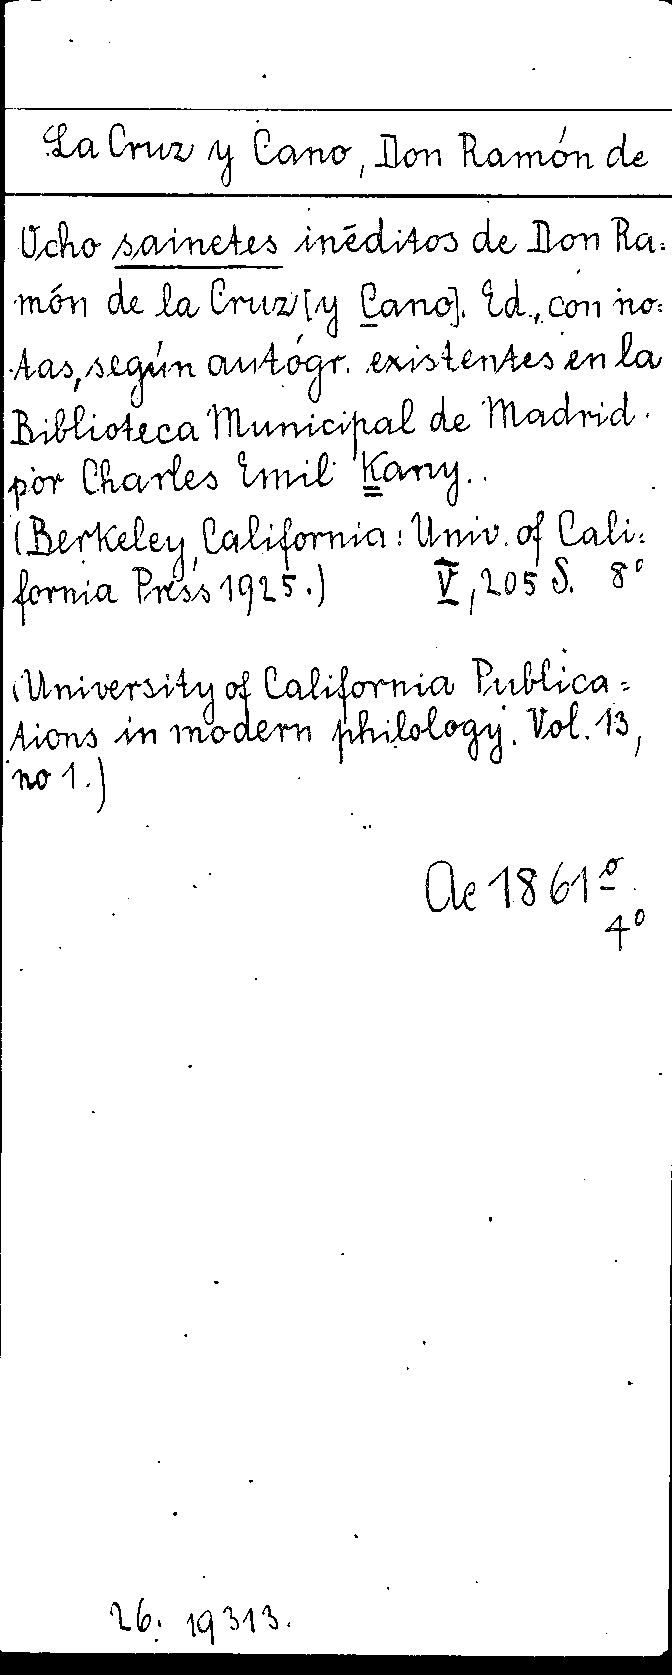 La Cruz y Cano, Don Ramón de
Ocho sainetes inéditos de Don Ra=
món de la Cruz [y Cano]. Ed., con no=
tas, según autógr. existentes en la
Biblioteca Municipal de Madrid
por Charles Emil Kany..
(Berkeley, California: Univ. of Cali=
fornia Press 1925.) V, 205 S. 8°
(University of California Publica=
tions in modern philology. Vol. 13,
no 1.)
Ac 1861º
4º
26. 19313.